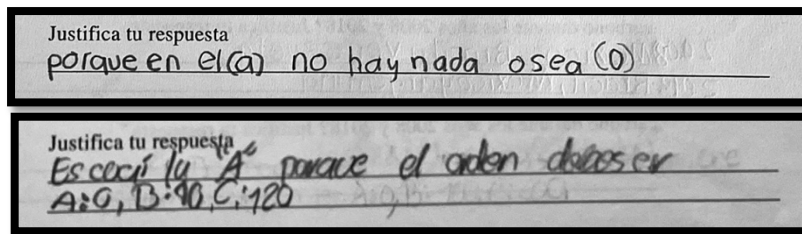 Justifica tu respuesta
porque en el (a) no hay nada osea (0)
Justifica tu respuesta
Escocí la "A" porque el orden debe ser
A:0, B:90, C:120